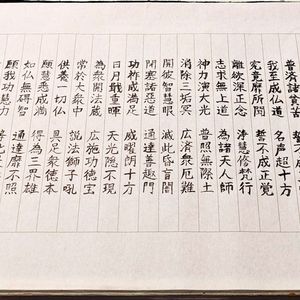 普済諸貧苦 誓不成正覚
我至成仏道 名声超十方
究竟靡所聞 誓不成正覚
離欲深正念 浄慧修梵行
志求無上道 為諸天人師
神力演大光 普照無際土
消除三垢冥 広済衆厄難
開彼智慧眼 滅此昏盲闇
閉塞諸悪道 通達善趣門
功祚成満足 威曜朗十方
日月戢重暉 天光隠不現
為衆開法蔵 広施功徳宝
常於大衆中 説法獅子吼
供養一切仏 具足衆徳本
願慧悉成満 得為三界雄
如仏無碍智 通達靡不照
願我功慧力